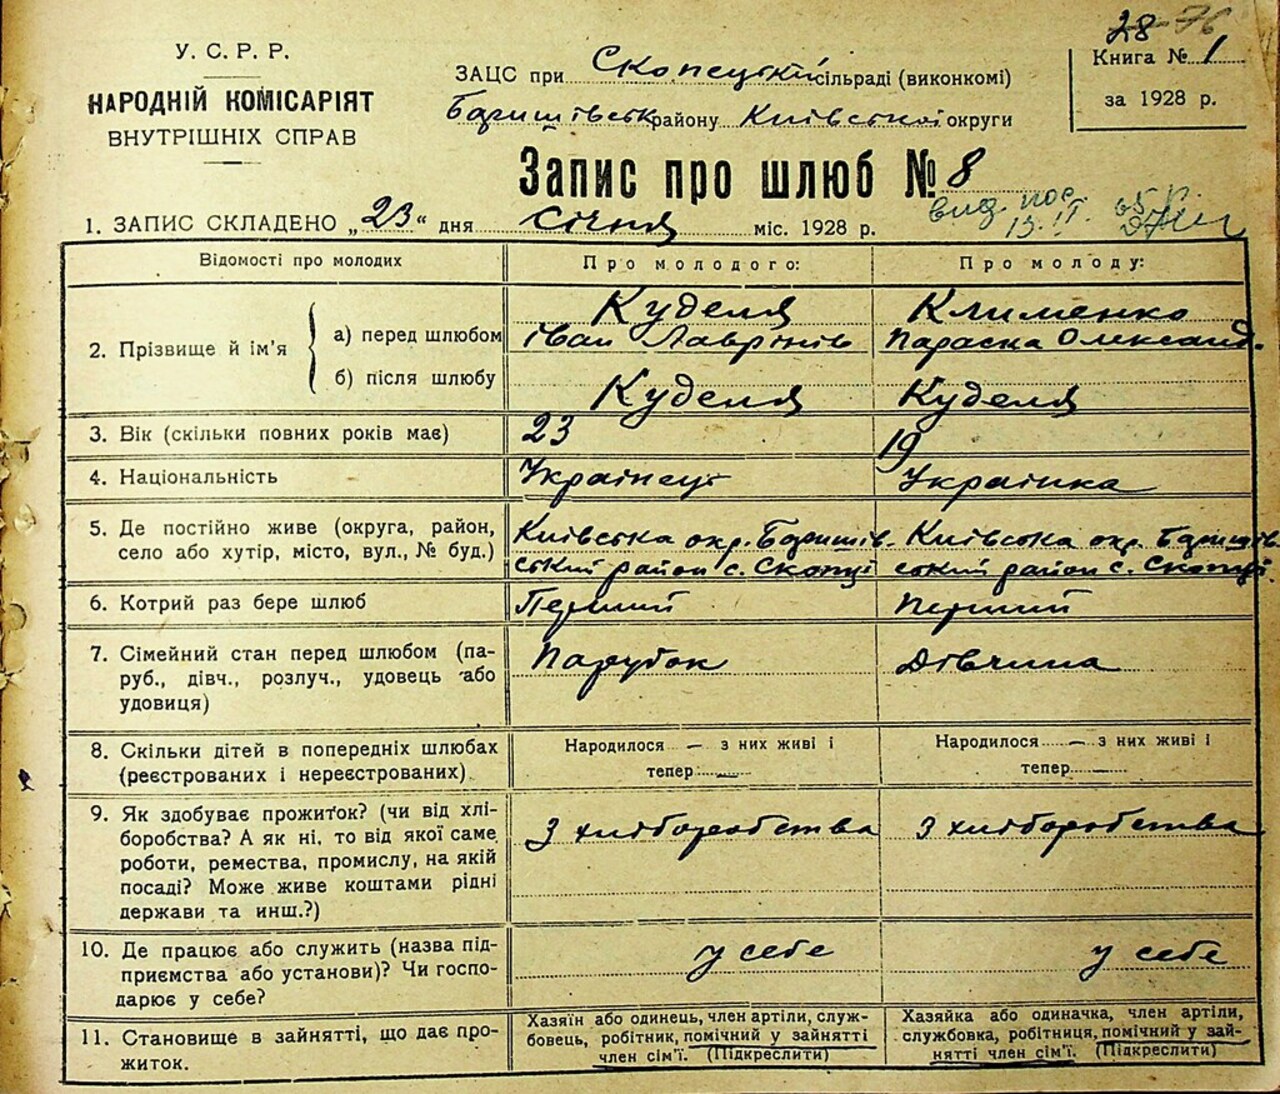 28-76
У. С. Р. Р.
НАРОДНІЙ КОМІСАРІЯТ
ВНУТРІШНІХ СПРАВ
ЗАЦС при Скопецькій сільраді (виконкомі)
Баришівськ району Київської округи
Книга № 1
за 1928 р.
Запис про шлюб № 8
вид. пос.
13.II.
1. ЗАПИС СКЛАДЕНО „23“ дня січня міс. 1928 р.
Відомості про молодих
Про молодого:
Про молоду:
2. Прізвище й ім’я
а) перед шлюбом
Куделя
Іван Лаврінів
Клименко
Параска Олександ.
б) після шлюбу
Куделя
Куделя
3. Вік (скільки повних років має)
23
19
4. Національність
Українець
Українка
5. Де постійно живе (округа, район,
село або хутір, місто, вул., № буд.)
Київська окр. Баришів.
ський район с. Скопці
Київська окр. Баришів
ський район с. Скопці.
6. Котрий раз бере шлюб
Перший
Перший
7. Сімейний стан перед шлюбом (па-
руб., дівч., розлуч., удовець або
удовиця)
Парубок
Дівчина
8. Скільки дітей в попередніх шлюбах
(реєстрованих і нереєстрованих)
Народилося — з них живі і
тепер —
Народилося — з них живі і
тепер —
9. Як здобуває прожиток? (чи від хлі-
боробства? А як ні, то від якої саме
роботи, ремества, промислу, на якій
посаді? Може живе коштами рідні
держави та инш.?)
З хліборобства
З хліборобства
10. Де працює або служить (назва під-
приємства або установи)? Чи госпо-
дарює у себе?
у себе
у себе
11. Становище в зайнятті, що дає про-
житок.
Хазяїн або одинець, член артіли, служ-
бовець, робітник, помічний у зайнятті
член сім’ї. (Підкреслити)
Хазяйка або одиначка, член артіли,
службовка, робітниця, помічний у зай-
нятті член сім’ї. (Підкреслити)